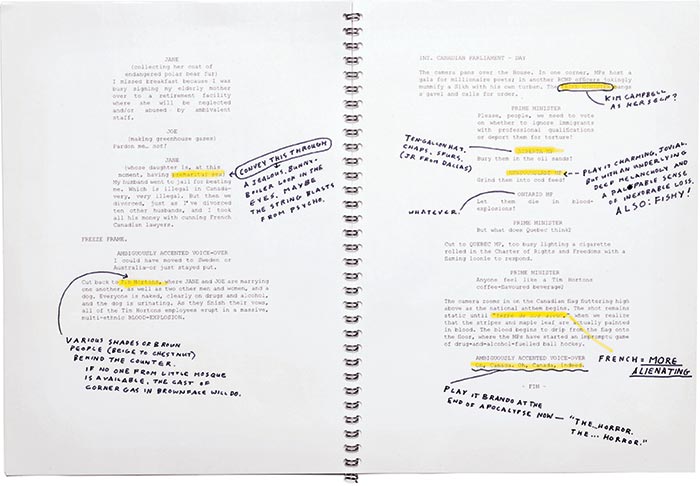 JANE
(collecting her coat of
endangered polar bear fur)
I missed breakfast because I was
busy signing my elderly mother
over to a retirement facility
where she will be neglected
and/or abused by ambivalent
staff.
JOE
(making greenhouse gases)
Pardon me… not!
JANE
(whose daughter is, at this
moment, having premarital sex)
My husband went to jail for beating
me. Which is illegal in Canada—
very, very illegal. But then we
divorced, just as I've divorced
ten other husbands, and I took
all his money with cunning French
Canadian lawyers.
FREEZE FRAME.
AMBIGUOUSLY ACCENTED VOICE-OVER
I could have moved to Sweden or
Australia—or just stayed put.
Cut back to Tim Hortons, where JANE and JOE are marrying
one another, as well as two other men and women, and a
dog. Everyone is naked, clearly on drugs and alcohol, and
the dog is urinating. As they finish their vows,
all of the Tim Hortons employees erupt in a massive,
multi-ethnic BLOOD-EXPLOSION.
CONVEY THIS THROUGH
A JEALOUS, BUNNY-
BOILER LOOK IN THE
EYES. MAYBE
THE STRING BLASTS
FROM PSYCHO.
VARIOUS SHADES OF BROWN
PEOPLE (BEIGE TO CHESTNUT)
BEHIND THE COUNTER.
IF NO ONE FROM LITTLE MOSQUE
IS AVAILABLE, THE CAST OF
CORNER GAS IN BROWNFACE WILL DO.
INT. CANADIAN PARLIAMENT - DAY
The camera pans over the House. In one corner, MPs host a
gala for millionaire poets; in another RCMP officers jokingly
mummify a Sikh with his own turban. The PRIME MINISTER bangs
a gavel and calls for order.
KIM CAMPBELL
AS HERSELF?
PRIME MINISTER
Please, people, we need to vote
on whether to ignore immigrants
with professional qualifications
or deport them for torture!
TEN-GALLON HAT,
CHAPS, SPURS,
(JR FROM DALLAS)
ALBERTA MP
Bury them in the oil sands!
NEWFOUNDLAND MP
Grind them into cod feed!
PLAY IT CHARMING, JOVIAL.
BUT WITH AN UNDERLYING
DEEP MELANCHOLY AND
A PALPABLE SENSE
OF INEXORABLE LOSS.
ALSO: FISHY!
ONTARIO MP
Let them die in blood-
explosions!
WHATEVER.
PRIME MINISTER
But what does Quebec think?
Cut to QUEBEC MP, too busy lighting a cigarette
rolled in the Charter of Rights and Freedoms with a
flaming loonie to respond.
PRIME MINISTER
Anyone feel like a Tim Hortons
coffee-flavoured beverage?
The camera zooms in on the Canadian flag fluttering high
above as the national anthem begins. The shot remains
static until "terre de nos aïeux," when we realize
that the stripes and maple leaf are actually painted
in blood. The blood begins to drip from the flag onto
the floor, where the MPs have started an impromptu game
of drug-and-alcohol-fuelled ball hockey.
FRENCH = MORE
ALIENATING
AMBIGUOUSLY ACCENTED VOICE-OVER
Oh, Canada. Oh, Canada, indeed.
- FIN -
PLAY IT BRANDO AT THE
END OF APOCALYPSE NOW — "THE HORROR.
THE... HORROR."